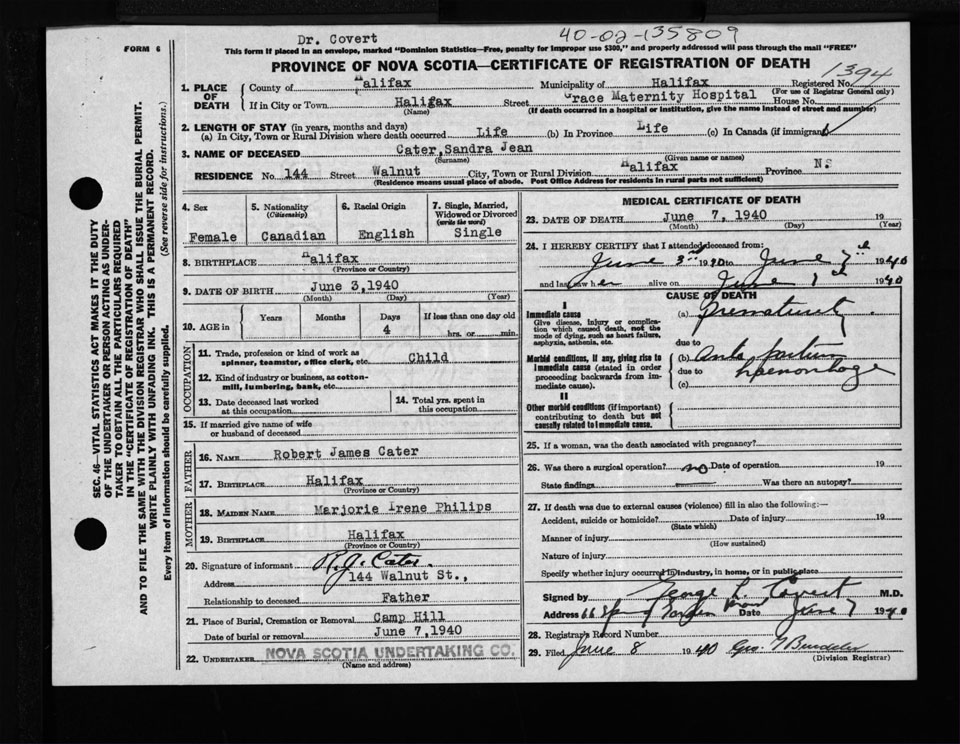 Dr. Covert 40-02-135809
FORM 6
This form if placed in an envelope, marked "Dominion Statistics—Free, penalty for improper use $300," and properly addressed will pass through the mail "FREE"
PROVINCE OF NOVA SCOTIA—CERTIFICATE OF REGISTRATION OF DEATH
1394
1. PLACE OF DEATH
County of Halifax Municipality of Halifax Registered No.
(For use of Registrar General only)
If in City or Town Halifax Street Grace Maternity Hospital House No.
(Name) (If death occurred in a hospital or institution, give the name instead of street and number)
2. LENGTH OF STAY (in years, months and days)
(a) In City, Town or Rural Division where death occurred Life (b) In Province Life (c) In Canada (if immigrant)
3. NAME OF DECEASED Cater, Sandra Jean
(Surname) (Given name or names)
RESIDENCE No. 144 Street Walnut City, Town or Rural Division Halifax Province NS
(Residence means usual place of abode. Post Office Address for residents in rural parts not sufficient)
SEC. 46—VITAL STATISTICS ACT MAKES IT THE DUTY
OF THE UNDERTAKER OR PERSON ACTING AS UNDER-
TAKER TO OBTAIN ALL THE PARTICULARS REQUIRED
IN THE "CERTIFICATE OF REGISTRATION OF DEATH"
AND TO FILE THE SAME WITH THE DIVISION REGISTRAR WHO SHALL ISSUE THE BURIAL PERMIT.
WRITE PLAINLY WITH UNFADING INK. THIS IS A PERMANENT RECORD.
Every item of information should be carefully supplied. (See reverse side for instructions.)
4. Sex Female
5. Nationality (Citizenship) Canadian
6. Racial Origin English
7. Single, Married, Widowed or Divorced (write the word) Single
8. BIRTHPLACE Halifax
(Province or Country)
9. DATE OF BIRTH June 3,1940
(Month) (Day) (Year)
10. AGE in Years Months Days 4 If less than one day old hrs. or min.
OCCUPATION
11. Trade, profession or kind of work as spinner, teamster, office clerk, etc. Child
12. Kind of industry or business, as cotton-mill, lumbering, bank, etc.
13. Date deceased last worked at this occupation
14. Total yrs. spent in this occupation
15. If married give name of wife or husband of deceased
FATHER
16. NAME Robert James Cater
17. BIRTHPLACE Halifax
(Province or Country)
MOTHER
18. MAIDEN NAME Marjorie Irene Philips
19. BIRTHPLACE Halifax
(Province or Country)
20. Signature of informant R.J. Cater.
Address 144 Walnut St.,
Relationship to deceased Father
21. Place of Burial, Cremation or Removal Camp Hill
Date of burial or removal June 7,1940
22. UNDERTAKER NOVA SCOTIA UNDERTAKING CO.
(Name and address)
MEDICAL CERTIFICATE OF DEATH
23. DATE OF DEATH June 7, 1940 19
(Month) (Day) (Year)
24. I HEREBY CERTIFY that I attended deceased from:
June 3rd 1940 to June 7th 1940
and last saw her alive on June 1940
CAUSE OF DEATH
I
Immediate cause
Give disease, injury or complication which caused death, not the mode of dying, such as heart failure, asphyxia, asthenia, etc.
(a) Prematurity
due to
Morbid conditions, if any, giving rise to immediate cause (stated in order proceeding backwards from immediate cause).
(b) Ante partum
due to haemorrhage
(c)
II
Other morbid conditions (if important) contributing to death but not causally related to immediate cause.
25. If a woman, was the death associated with pregnancy?
26. Was there a surgical operation? no Date of operation 19
State findings Was there an autopsy?
27. If death was due to external causes (violence) fill in also the following:—
Accident, suicide or homicide? Date of injury 19
(State which)
Manner of injury
(How sustained)
Nature of injury
Specify whether injury occurred in industry, in home, or in public place
Signed by George L. Covert M.D.
Address 66 Spring Garden Road Date June 7 1940
28. Registrar's Record Number
29. Filed June 8 1940 Geo.
(Division Registrar)